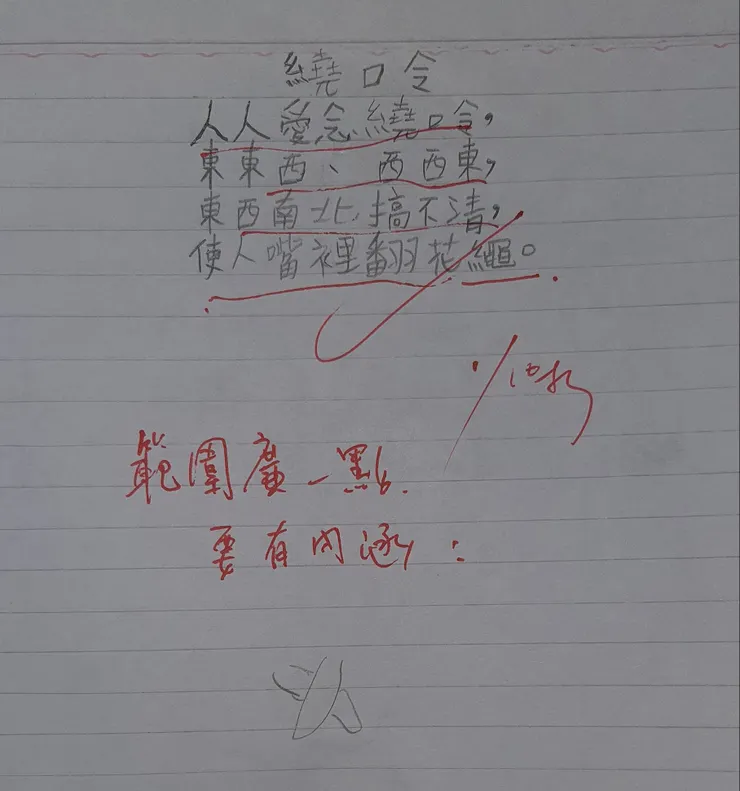 繞口令
人人愛念繞口令，
東東西、西西東，
東西南北搞不清，
使人嘴裡翻花繩。
範圍廣一點.
要有內涵：